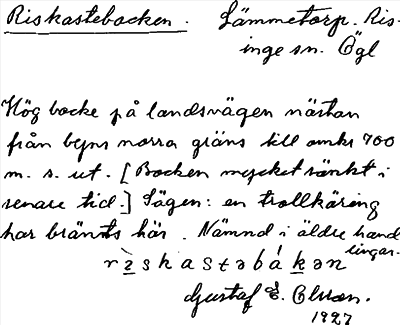 Riskastebacken. Lämmetorp. Ris-
inge sn. Ögl
Hög backe på landsvägen nästan
från byns norra gräns till omkr 700
m. s. ut. [Backen mycket sänkt i
senare tid.] Sägen: en trollkäring
har bränts här. Nämnd i äldre hand
lingar.
rɪskastəbákən
Gustaf E. Olsson.
1927